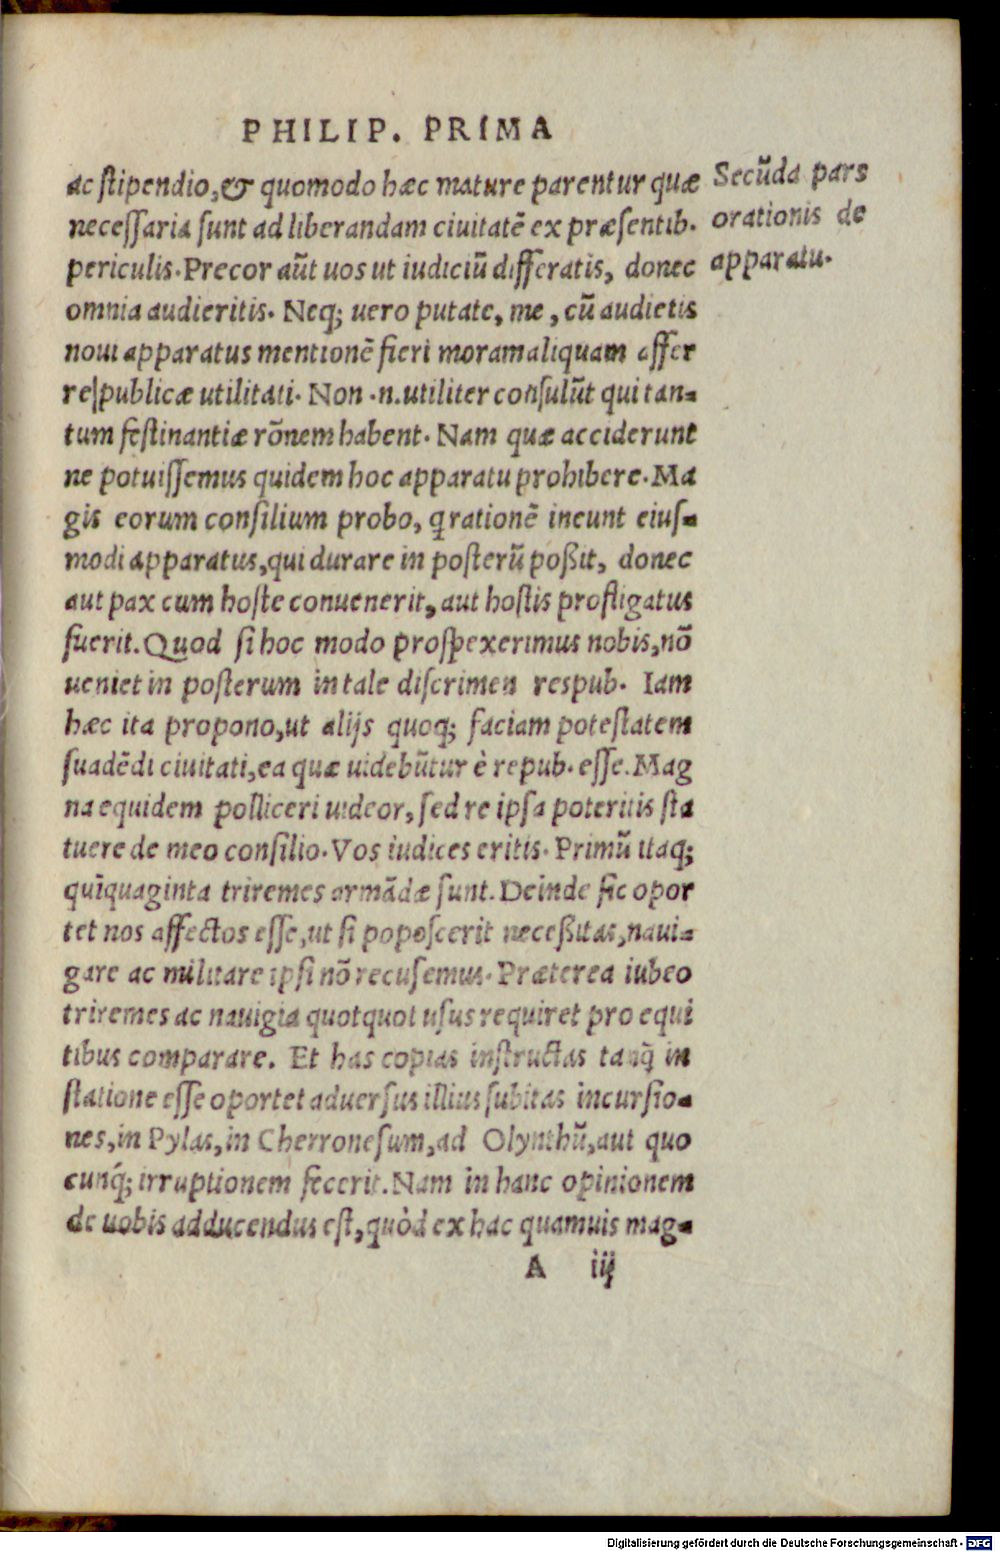 PHILIP. PRIMA
ac ſtipendio, & quomodo hæc mature parentur quæ
neceſſaria ſunt ad liberandam ciuitatē ex præſentib.
periculis. Precor aūt uos ut iudiciū differatis, donec
omnia audieritis. Neq; uero putate, me, cū audietis
noui apparatus mentionē fieri moram aliquam affer
re publicæ utilitati. Non .n. utiliter conſulūt qui tan-
tum feſtinantiæ rōnem habent. Nam quæ acciderunt
ne potuiſſemus quidem hoc apparatu prohibere. Ma
gis eorum conſilium probo, q rationē ineunt eiuſ-
modi apparatus, qui durare in poſterū poßit, donec
aut pax cum hoſte conuenerit, aut hoſtis profligatus
fuerit. Quod ſi hoc modo proſpexerimus nobis, nō
ueniet in poſterum in tale diſcrimen reſpub. Iam
hæc ita propono, ut alijs quoq; faciam poteſtatem
ſuadēdi ciuitati, ea quæ uidebūtur è repub. eſſe. Mag
na equidem polliceri uideor, ſed re ipſa poteritis ſta
tuere de meo conſilio. Vos iudices eritis. Primū itaq;
quīquaginta triremes armādæ ſunt. Deinde ſic opor
tet nos affectos eſſe, ut ſi popoſcerit neceßitas, naui-
gare ac militare ipſi nō recuſemus. Præterea iubeo
triremes ac nauigia quotquot uſus requiret pro equi
tibus comparare. Et has copias inſtructas tanq̄ in
ſtatione eſſe oportet aduerſus illius ſubitas incurſio-
nes, in Pylas, in Cherroneſum, ad Olynthū, aut quo
cunq́; irruptionem fecerit. Nam in hanc opinionem
de uobis adducendus eſt, quòd ex hac quamuis mag-
A iij
Secūda pars
orationis de
apparatu.
Digitalisierung gefördert durch die Deutsche Forschungsgemeinschaft - DFG